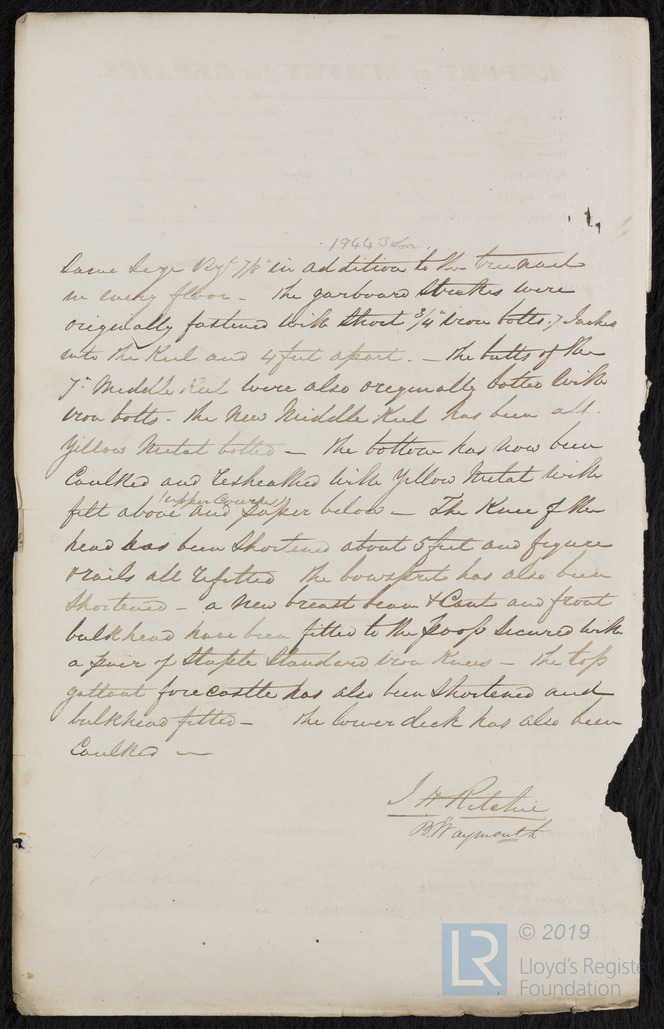 19443 Lon.
Same Size Viz: 7/8" in addition to the treenail
in every floor - The garboard Strakes were
originally fastened with Short 3/4" iron bolts, 7 Inches
into the Keel and 4 feet apart. - The butts of the
Middle Keel were also originally bolted with
iron bolts - the New Middle Keel has been all
Yellow Metal bolted - The bottom has now been
Caulked and resheathed with Yellow Metal with
(upper Courses)
felt above and paper below - The Knee of the
head has been Shortened about 5 feet and figure
& rails all refitted The bowsprit has also been
Shortened - a New breast beam & Cant and front
bulkhead have been fitted to the Poop Secured with
a pair of Staple Standard iron Knees - The top
gallant forecastle has also been Shortened and
bulkhead fitted - The lower deck has also been
Caulked -
J H Ritchie
B. Waymouth
LR
© 2019
Lloyd's Register
Foundation